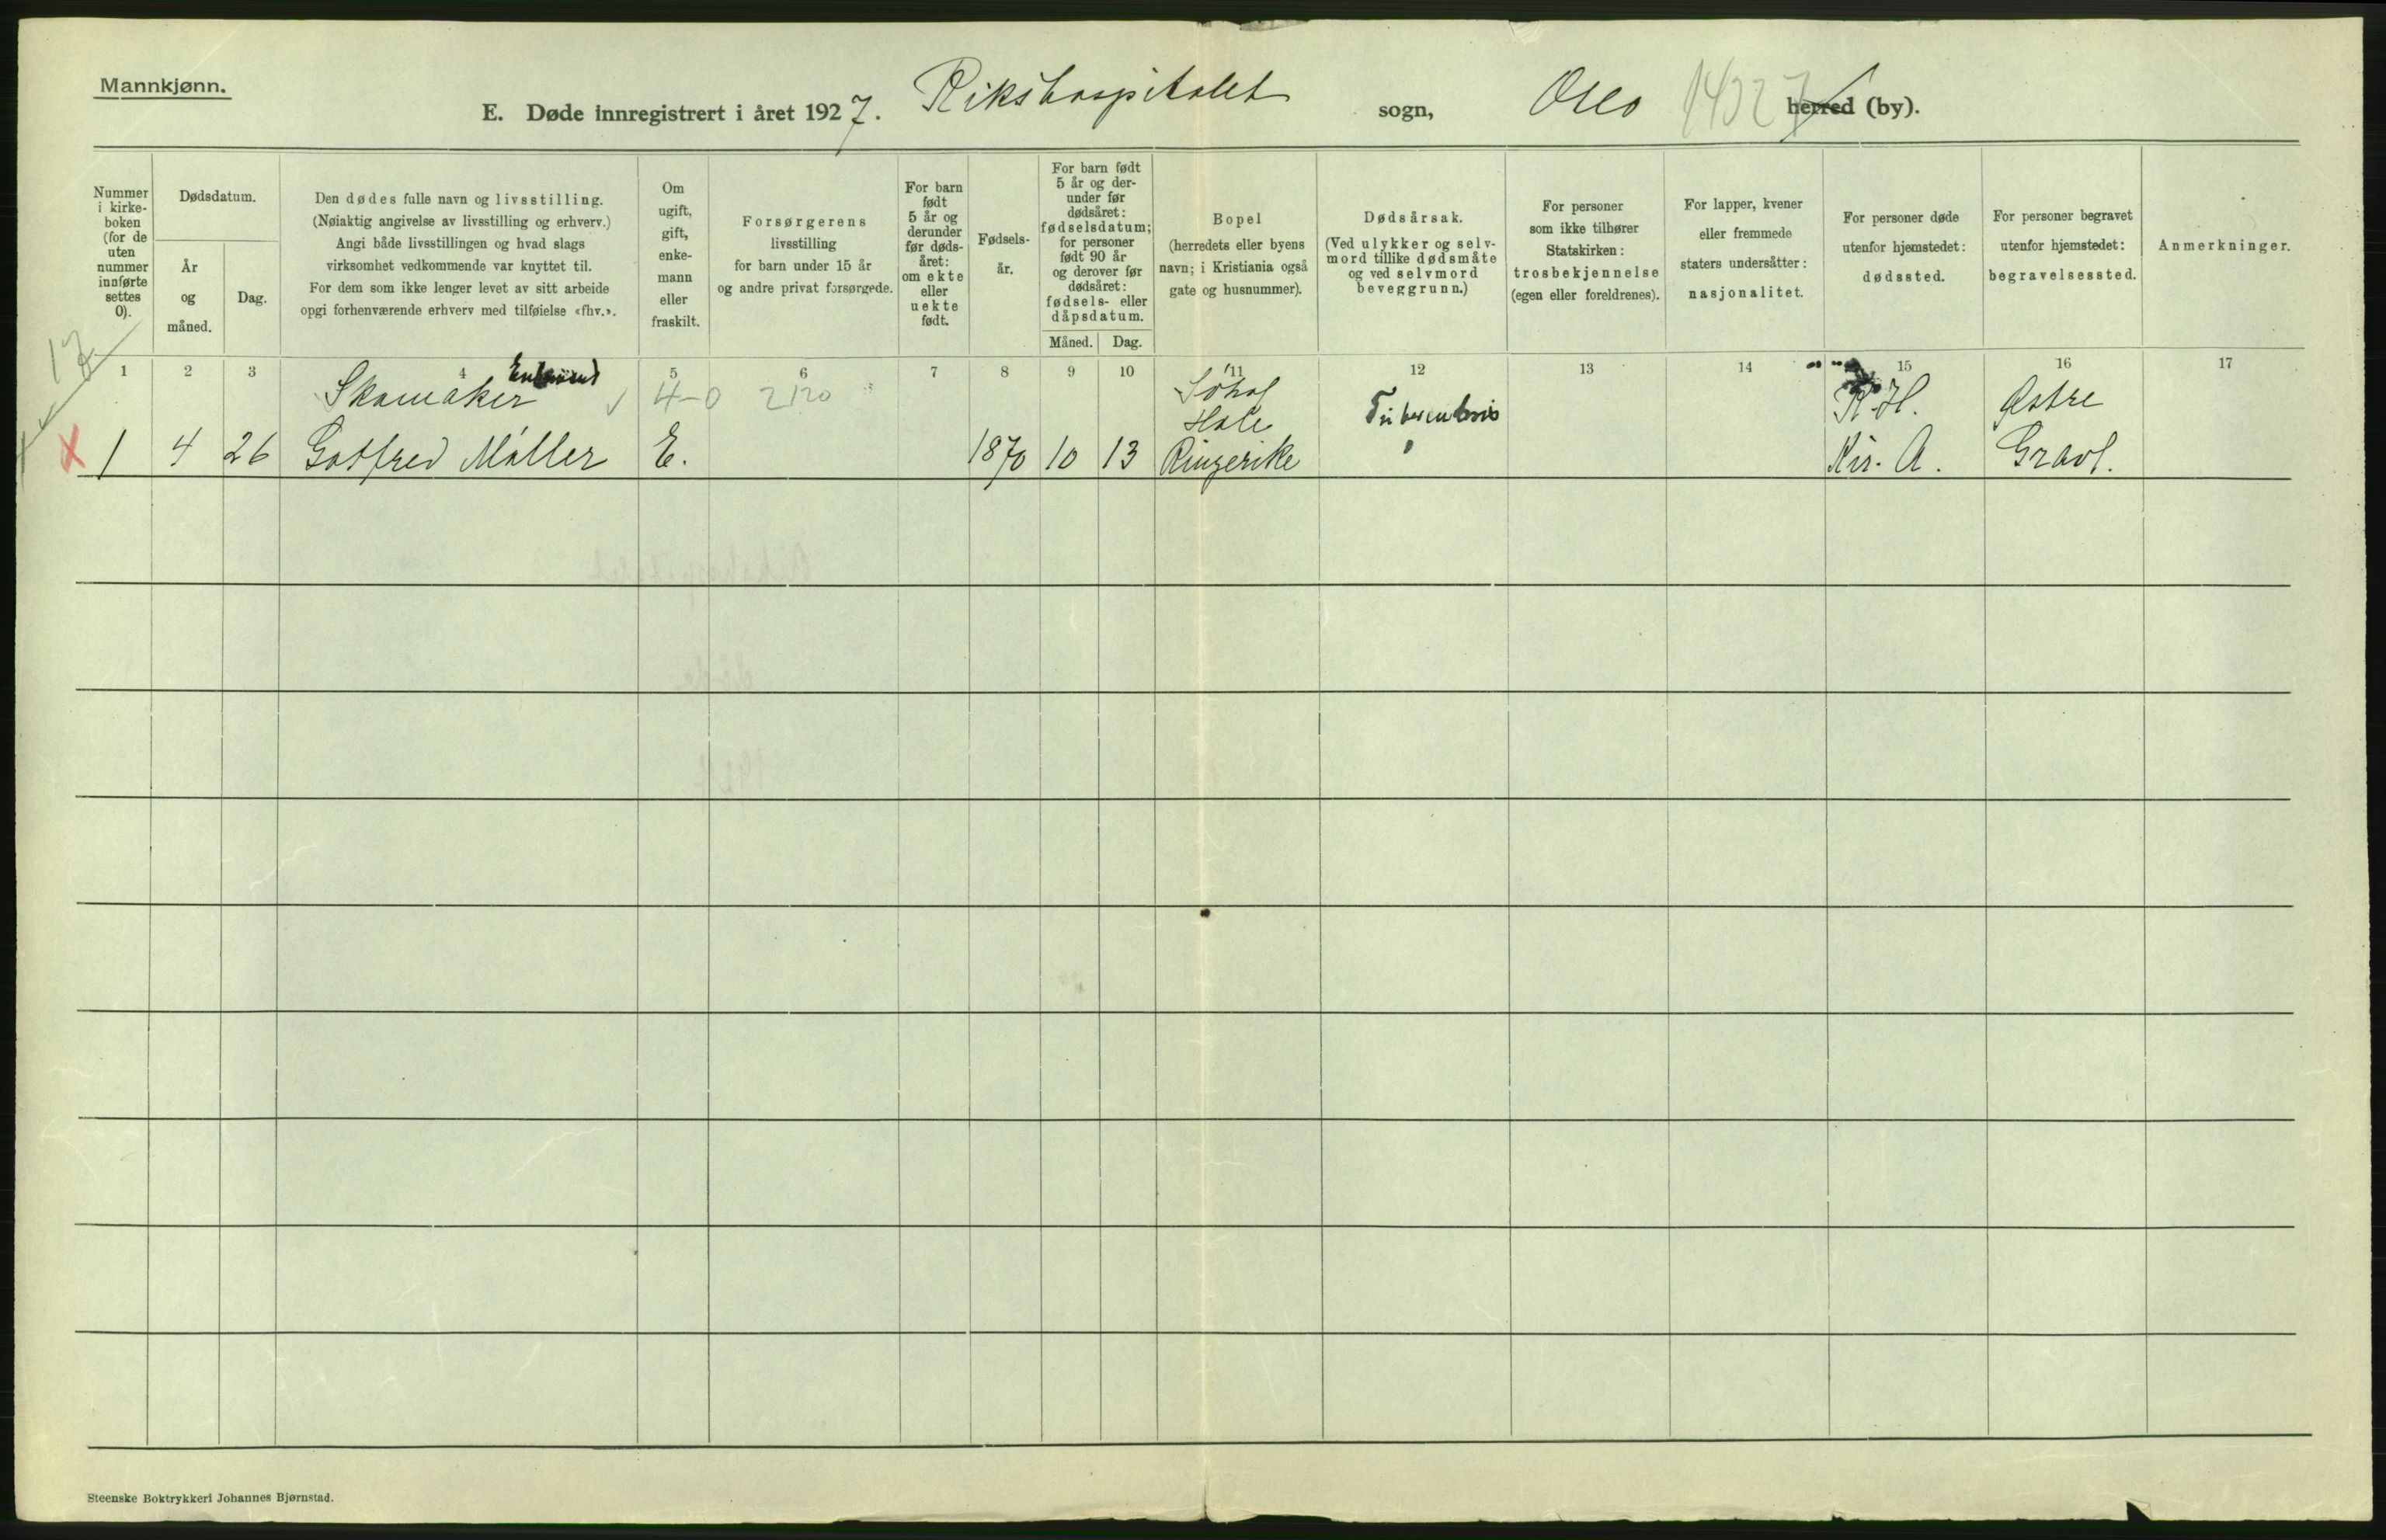 Mannkjønn.
E. Døde innregistrert i året 1927. Rikshospitalet sogn, Oslo herred (by).
Nummer
i kirke-
boken
(for de
uten
nummer
innførte
settes
0).
Dødsdatum.
År
og
måned.
Dag.
Den dødes fulle navn og livsstilling.
(Nøiaktig angivelse av livsstilling og erhverv.)
Angi både livsstillingen og hvad slags
virksomhet vedkommende var knyttet til.
For dem som ikke lenger levet av sitt arbeide
opgi forhenværende erhverv med tilføielse «fhv.».
Om
ugift,
gift,
enke-
mann
eller
fraskilt.
Forsørgerens
livsstilling
for barn under 15 år
og andre privat forsørgede.
For barn
født
5 år og
derunder
før døds-
året:
om ekte
eller
uekte
født.
Fødsels-
år.
For barn født
5 år og der-
under før
dødsåret:
fødselsdatum;
for personer
født 90 år
og derover før
dødsåret:
fødsels- eller
dåpsdatum.
Måned. Dag.
Bopel
(herredets eller byens
navn; i Kristiania også
gate og husnummer).
Dødsårsak.
(Ved ulykker og selv-
mord tillike dødsmåte
og ved selvmord
beveggrunn.)
For personer
som ikke tilhører
Statskirken:
trosbekjennelse
(egen eller foreldrenes).
For lapper, kvener
eller fremmede
staters undersåtter:
nasjonalitet.
For personer døde
utenfor hjemstedet:
dødssted.
For personer begravet
utenfor hjemstedet:
begravelsessted.
Anmerkninger.
1 2 3 4 5 6 7 8 9 10 11 12 13 14 15 16 17
Skomaker 4-0 2120 Hole Tuberculosis R.H. Østre
1 4 26 Gotfred Möller E. 1870 10 13 Ringerike Kir. A. Gravl.
Steenske Boktrykkeri Johannes Bjørnstad.